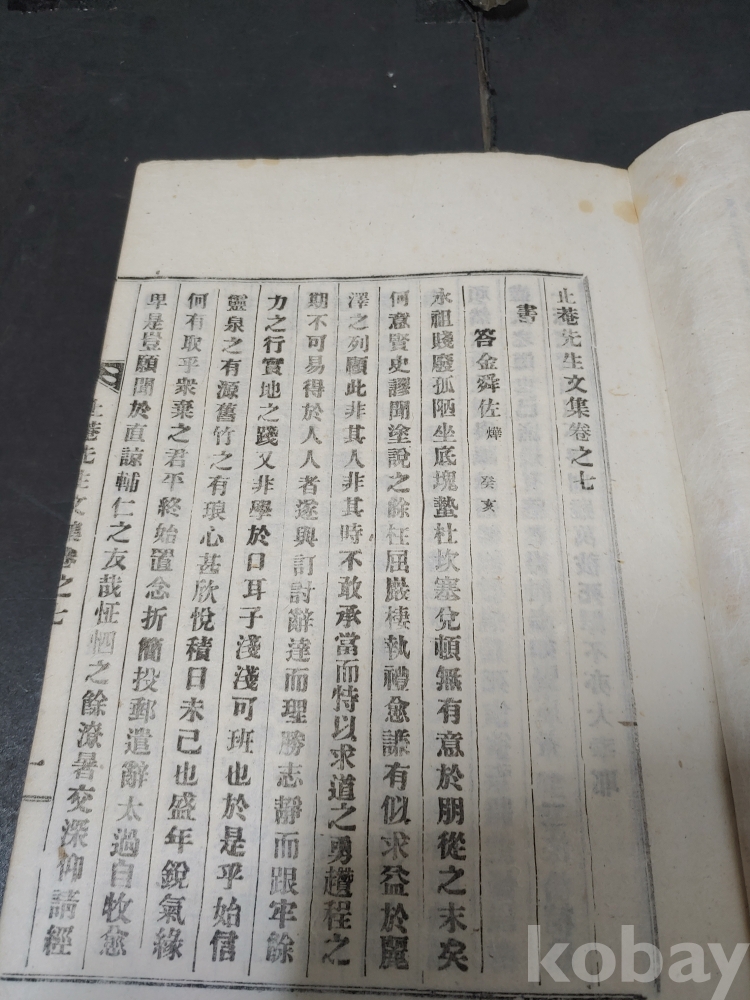 止菴先生文集卷之七
書
答金舜佐 燁 癸亥
永祖賤廢孤陋坐底塊蟄杜坎塞兌頓無有意於朋從之末矣
何意賢史謬聞塗說之餘枉屈巖棲執禮愈謙有似求益於麗
澤之列顧此非其人非其時不敢承當而恃以求道之勇趲程之
期不可易得於人人者遂與訂討辭達而理勝志靜而跟牢餘
力之行實地之踐又非學於口耳子淺淺可班也於是乎始信
靈泉之有源舊竹之有琅心甚欣悅積日未已也盛年銳氣緣
何有取乎衆棄之君平終始置念折簡投郵遣辭太過自牧愈
卑是豈願聞於直諒輔仁之友哉恠悃之餘潦暑交深仰請經
止菴先生文集卷之七
一
kobay